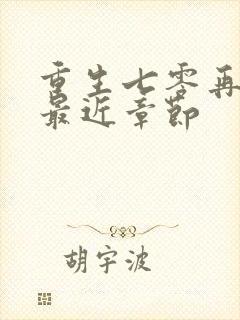 重生七零再
最近章节
胡宇波